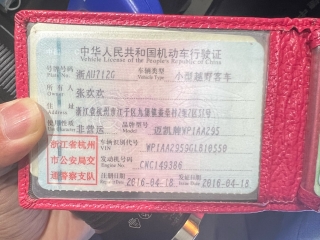 中华人民共和国机动车行驶证
Vehicle License of the People's Republic of China
号牌号码 浙AU712G 车辆类型 小型越野客车
Plate No. Vehicle Type
所有人 张欢欢
Owner
住址 浙江省杭州市江干区九堡镇
Address
使用性质 非营运 品牌型号 迈凯牌WP1AA295
浙江省杭州
市公安局交
通警察支队
车辆识别代号 WP1AA2959GLB10550
VIN
发动机号码 CNC149386
Engine No.
注册日期 2016-04-18 发证日期 2016-04-18
Register Date Issue Date